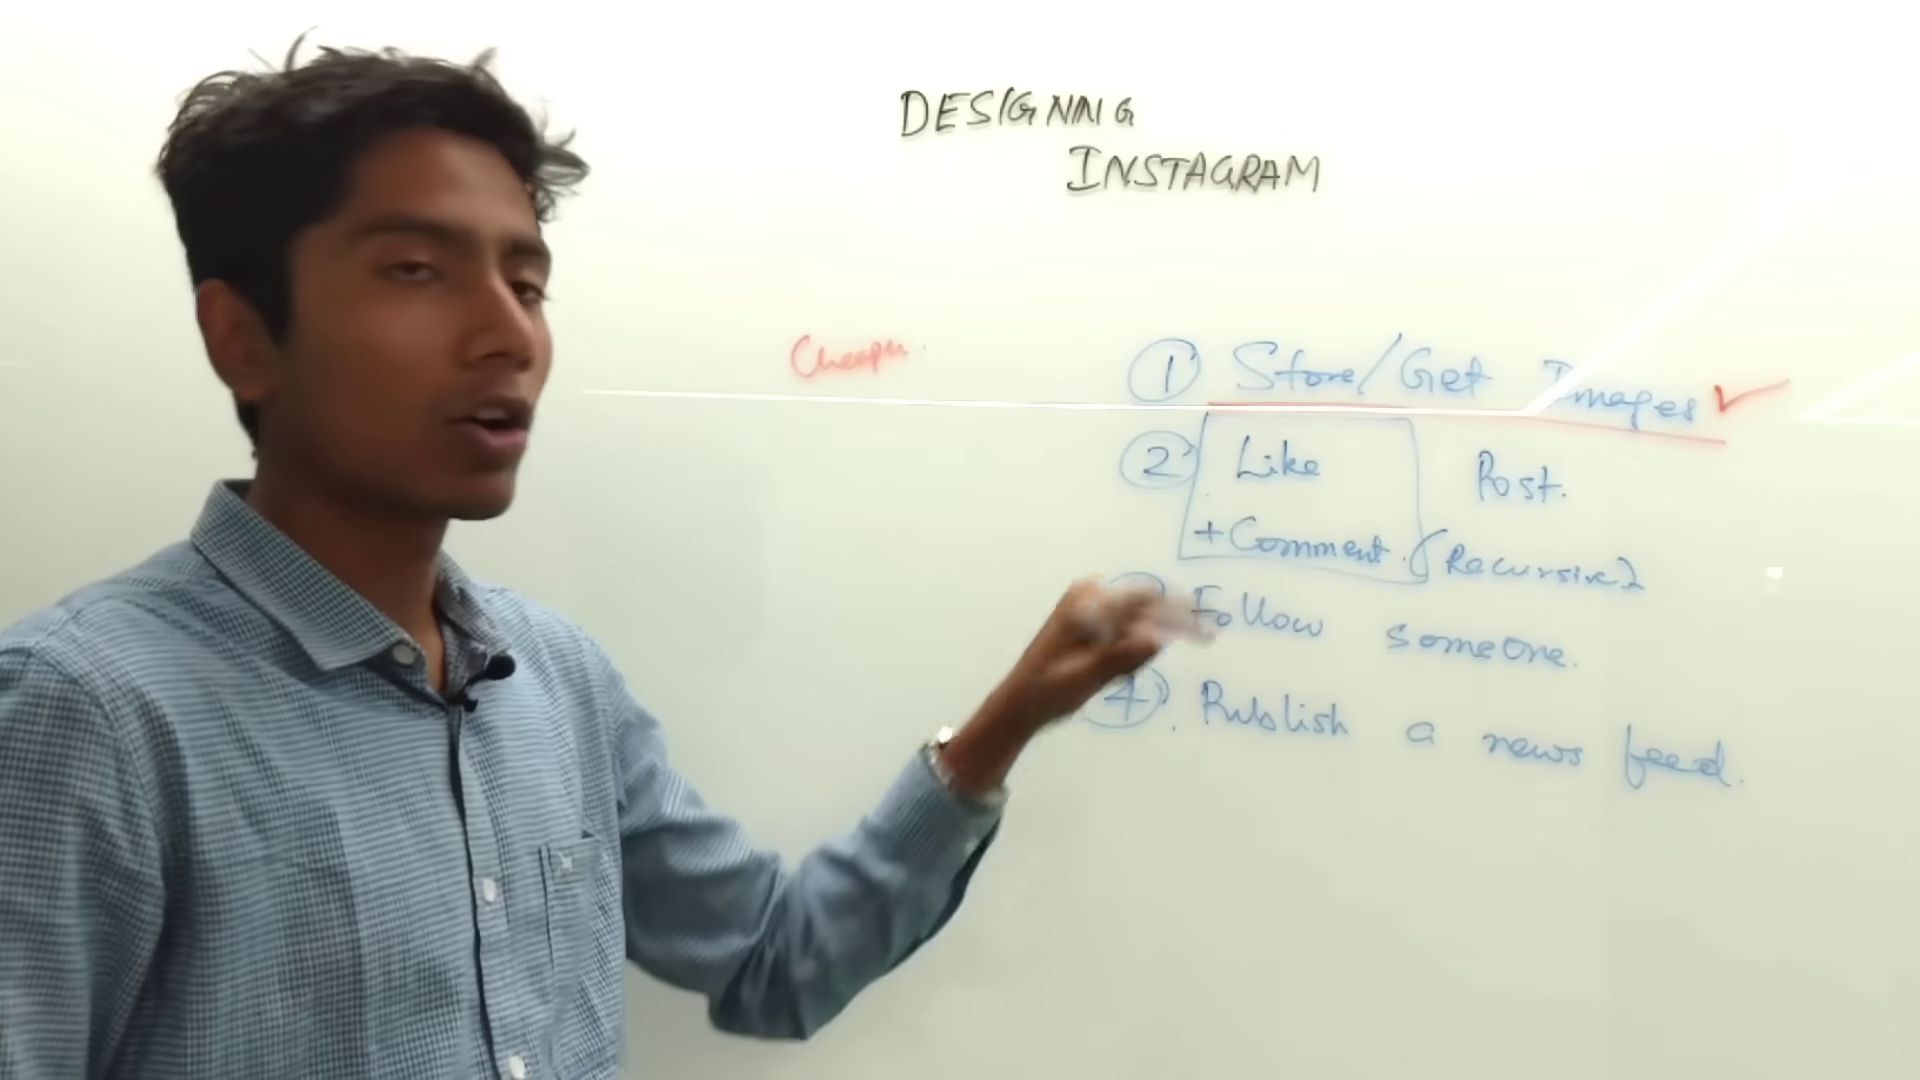 DESIGNING
INSTAGRAM
Cheaper
1 Store/Get Images ✓
2 Like Post.
+ Comment. (Recursive?
Follow someone.
4. Publish a news feed.